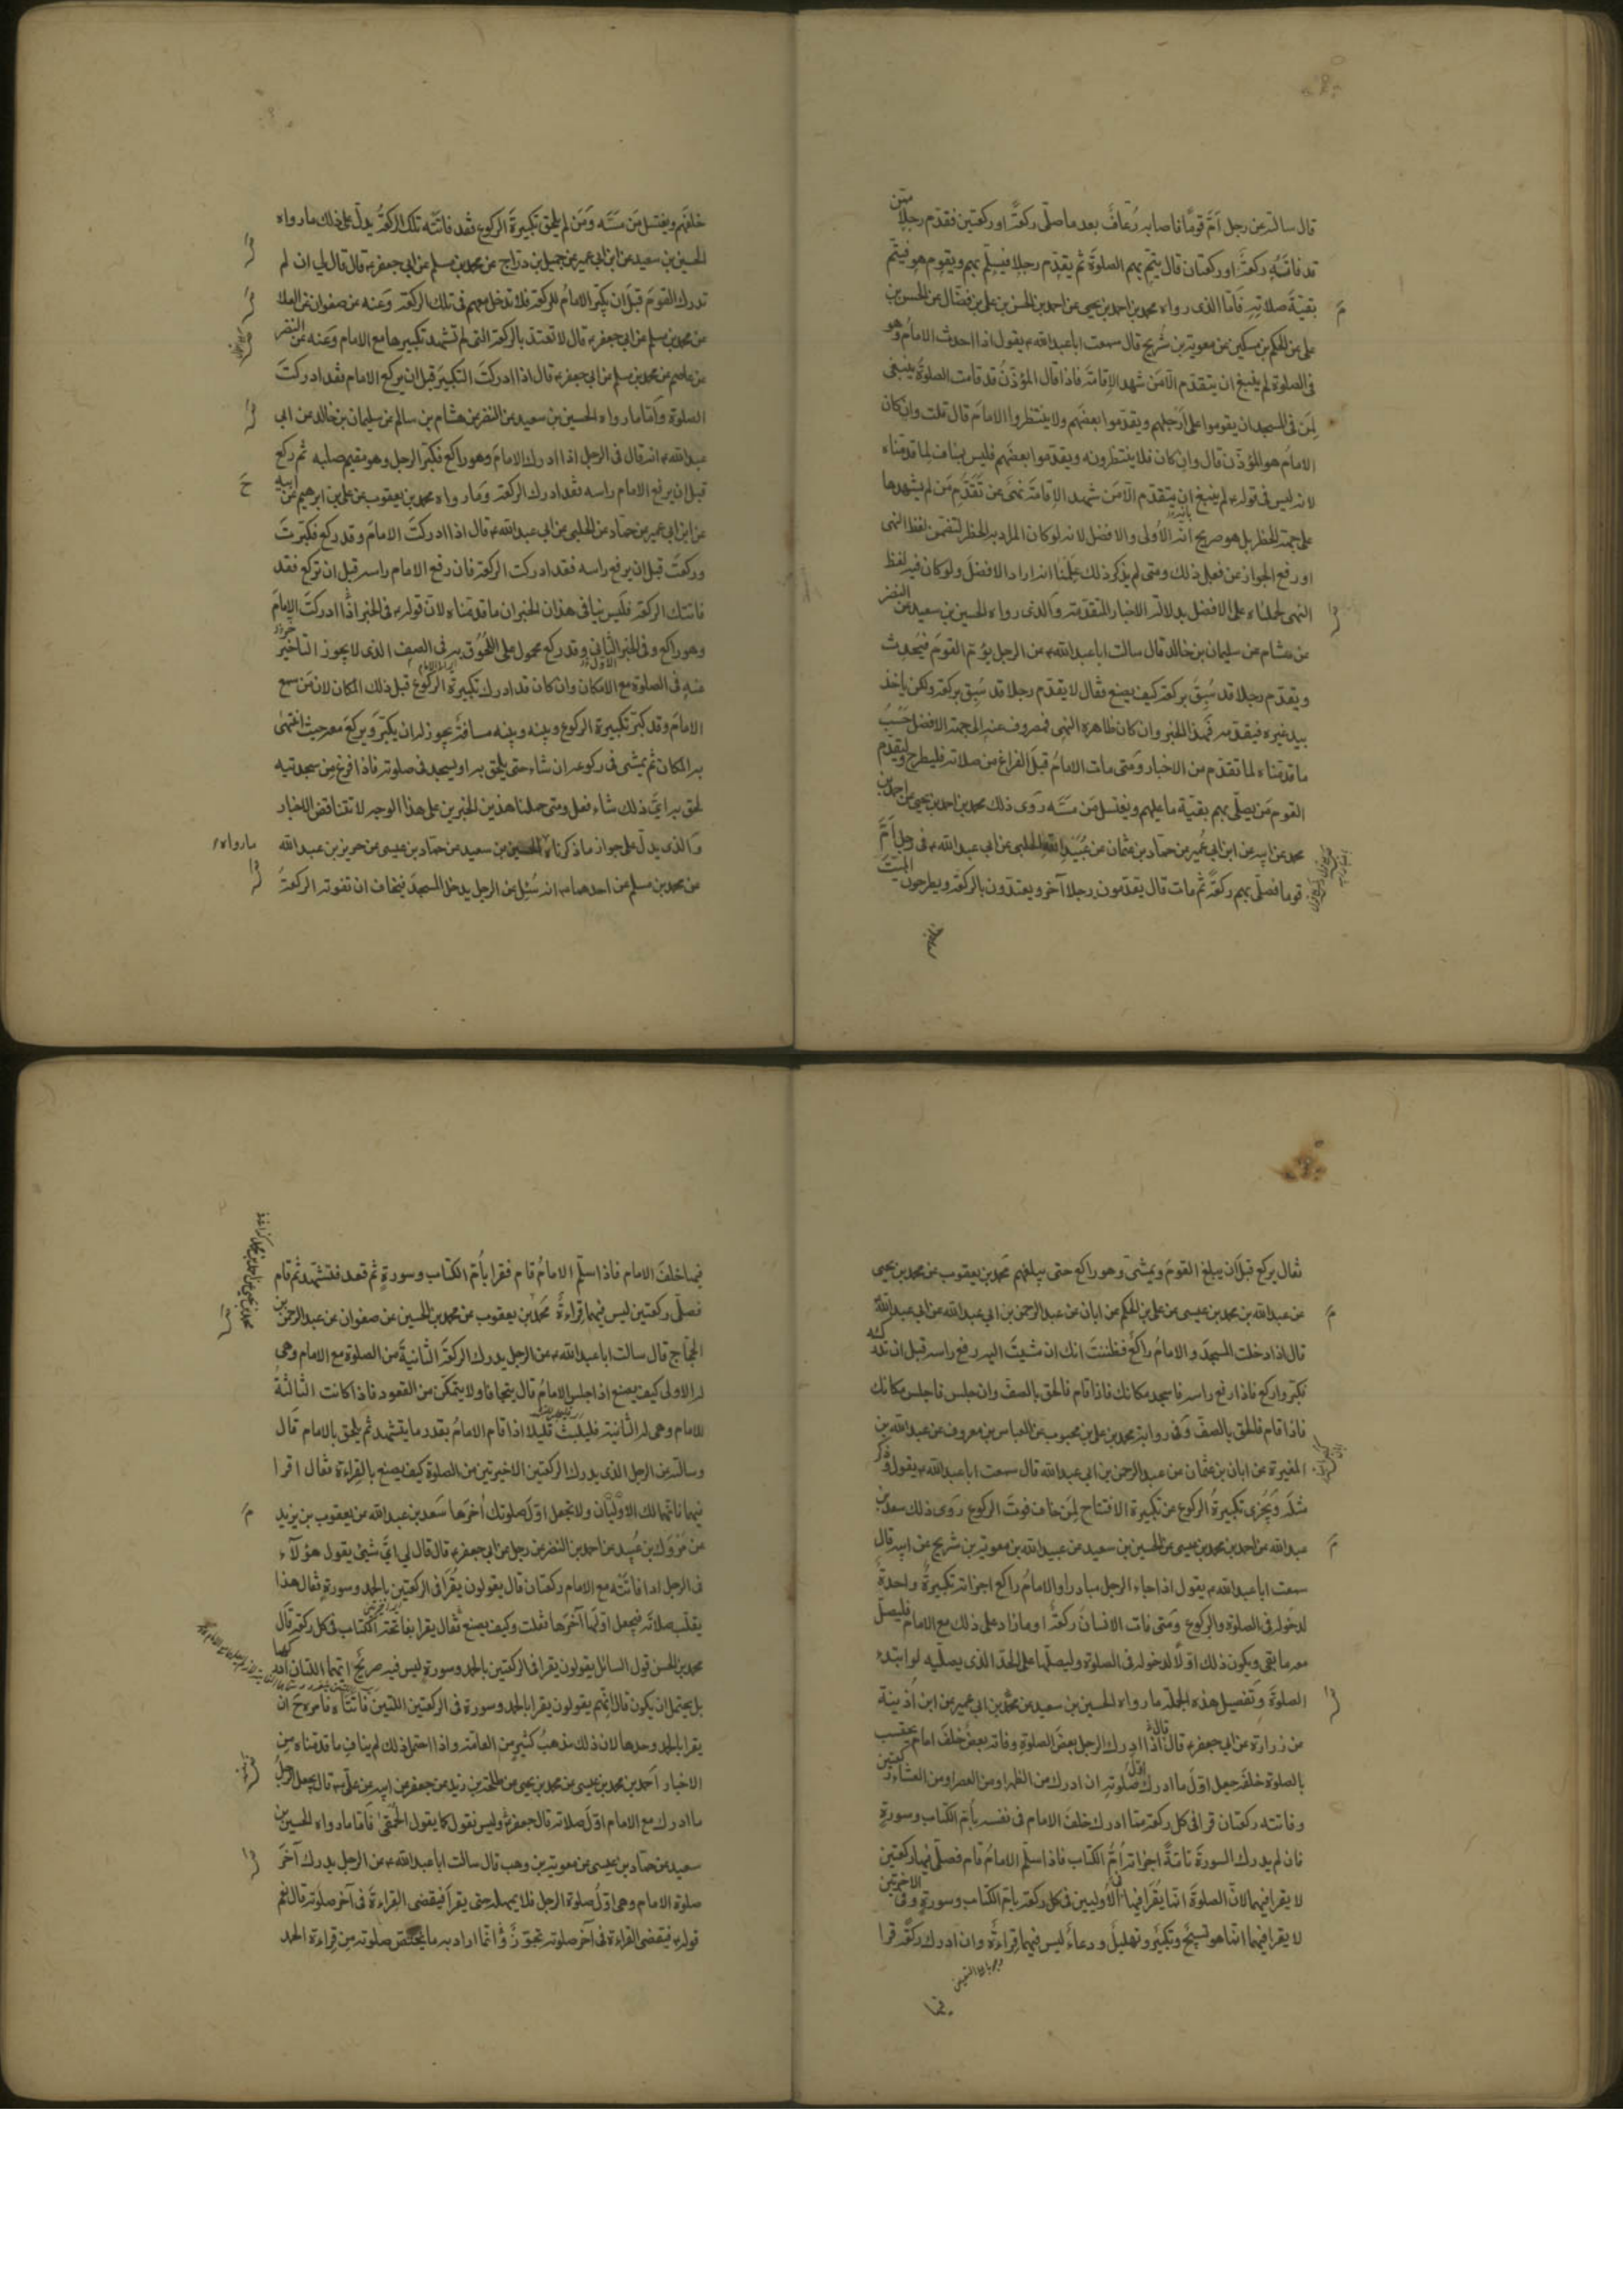 قال سالته عن رجل اَمَّ قومًا فاصابه رُعافٌ بعد ما صلّى ركعةً او ركعتين فقدّم رجلا ممّن
قد فاتَتْهُ ركعةً او ركعتان قال يتمّ بهم الصلوةَ ثم يقدّم رجلا فيسلّم بهم ويقوم هو فيتمّ
بقيّة صلاتِهِ فَامّا الذى رواه محمد بن احمد بن يحيى عن احمد بن الحسن بن على بن فضّال عن الحسن بن
على عن الحكم بن مسكين عن معوية بن شُريح قال سمعت ابا عبد الله يقول اذا احدث الامام وهو
فى الصلوة لم ينبغ ان يتقدّم الّا مَن شهد الاِقامَةَ فاذا قال المؤذّنُ قد قامت الصلوةُ ينبغى
لِمَن فى المسجد ان يقوموا على اَرْجلهم ويقدّموا بعضَهم ولا ينتظروا الامامَ قال قلت وان كان
الامام هو المؤذّن قال وان كان فلا ينتظرونه ويقدّموا بعضَهم فليس بمناف لِما قدمناه
لانه ليس فى قوله لم ينبغ ان يتقدّم الّا مَن شهد الاِقامَةَ نهىٌ عن تَقَدُّمِ مَن لم يشهدها
على جهة الحظر بل هو صريح بانه الاَولى والافضل لانه لو كان المراد به الحظر لتضمّن لفظ النهى
او رفع الجواز عن فعل ذلك ومتى لم يذكر ذلك عَلِمْنا انه اراد الافضلَ ولو كان فيه لفظ
النهى لحملناه على الافضل بدلالة الاخبار المتقدّمة وَالذى رواه الحسين بن سعيد عن النضر
عن هشام عن سليمان بن خالد قال سالت ابا عبد الله عن الرجل يؤمّ القومَ فيُحدِث
ويقدّم رجلا قد سُبِقَ بركعة كيف يصنع فقال لا يقدّم رجلا قد سُبِقَ بركعة ولكن ياخذ
بيد غيره فيقدّمه فهذا الخبر وان كان ظاهره النهى فمصروف عنه الى جهة الافضل حَسْبُ
ما قدّمناه لما تقدّم من الاخبار وَمتى مات الامامُ قبلَ الفراغ من صلاته فليطرح وليتقدّم
القوم مَن يصلّى بهم بقيّة ما عليهم ويغتسل مَن مَسّه رَوى ذلك محمد بن احمد بن يحيى عن احمد بن
محمد عن ابيه عن ابن ابى عُمير عن حمّاد بن عثمان عن عُبَيْدِ الله الحلبى عن ابى عبد الله فى رجل اَمَّ
قوما فصلّى بهم ركعةً ثم مات قال يقدّمون رجلا آخر ويعتدّون بالركعة ويطرحون الميّتَ
خلفهم
خلفَهم ويغتسل مَن مَسّه وَمَن لم يلحق تكبيرةَ الركوع فقد فاتَتْه تلك الركعةُ يدلّ على ذلك ما رواه
الحسين بن سعيد عن ابن ابى عمير عن جميل بن درّاج عن محمد بن مسلم عن ابى جعفر قال قال لى ان لم
تدرك القومَ قبلَ ان يكبّر الامامُ للركعة فلا تدخل معهم فى تلك الركعة وَعنه عن صفوان عن العلا
عن محمد بن مسلم عن ابى جعفر قال لا تعتدّ بالركعة التى لم تشهد تكبيرها مع الامام وَعنه عن النضر
عن عاصم عن محمد بن مسلم عن ابى جعفر قال اذا ادركتَ التكبيرَ قبل ان يركع الامام فقد ادركتَ
الصلوة وَامّا ما رواه الحسين بن سعيد عن النضر عن هشام بن سالم عن سليمان بن خالد عن ابى
عبد الله انه قال فى الرجل اذا ادرك الامامَ وهو راكع فكبّر الرجل وهو مقيم صلبه ثم ركع
قبل ان يرفع الامام راسه فقد ادرك الركعة وَما رواه محمد بن يعقوب عن على بن ابرهيم عن ابيه
عن ابن ابى عمير عن حمّاد عن الحلبى عن ابى عبد الله قال اذا ادركتَ الامامَ وقد ركع فكبّرتَ
وركعتَ قبل ان يرفع راسه فقد ادركت الركعة فان رفع الامام راسه قبل ان تركع فقد
فاتتك الركعة فليس ينافى هذان الخبران ما قدّمناه لانّ قوله فى الخبر اذا ادركتَ الامامَ
وهو راكع وفى الخبر الثانى وقد ركع محمول على اللُّحُوق به فى الصف الذى لا يجوز التاخير
عنه فى الصلوة مع الامكان وان كان قد ادرك تكبيرة الركوع قبل ذلك المكان لان مَن سمع
الامامَ وقد كبّر تكبيرة الركوع وبينه وبينه مسافةٌ يجوز له ان يكبّر وَيركع معه حيث انتهى
به المكان ثم يمشى فى ركوعه ان شاء حتى يلحق به او يسجد فى صلوته فاذا فرغ مِن سجدتيه
لحق به اىّ ذلك شاء فعل ومتى حملنا هذين الخبرين على هذا الوجه لا تتناقض الاخبار
وَالذى يدلّ على جواز ما ذكرناه الحسين بن سعيد عن حمّاد بن عيسى عن حريز بن عبد الله
ما رواه
عن محمد بن مسلم عن احدهما انه سُئِل عن الرجل يدخل المسجدَ فيخاف ان تفوته الركعةُ
فقال يركع قبل ان يبلغ القومَ ويمشى وهو راكع حتى يبلغهم محمد بن يعقوب عن محمد بن يحيى
عن عبد الله بن محمد بن عيسى عن على بن الحكم عن ابان عن عبد الرحمن بن ابى عبد الله عن ابى عبد الله
قال اذا دخلت المسجدَ والامامُ راكعٌ فظننتَ انك ان مشيتَ اليه رفع راسه قبل ان تدركه
فكبّر واركع فاذا رفع راسه فاسجد مكانك فاذا قام فالحق بالصفّ وان جلس فاجلس مكانك
فاذا قام فالحق بالصفّ وَفى رواية محمد بن على بن محبوب عن العباس بن معروف عن عبد الله بن
المغيرة عن ابان بن عثمان عن عبد الرحمن بن ابى عبد الله قال سمعت ابا عبد الله يقول وذكر
مثلَه وَيُجزى تكبيرةُ الركوع عن تكبيرة الافتتاح لِمَن خاف فوتَ الركوع رَوى ذلك سعد بن
عبد الله عن احمد بن محمد بن عيسى عن الحسين بن سعيد عن عبيد الله بن معوية بن شريح عن ابيه قال
سمعت ابا عبد الله يقول اذا جاء الرجل مبادرا والامامُ راكع اجزاته تكبيرةٌ واحدةٌ
لدخوله فى الصلوة والركوع وَمتى فات الانسانَ ركعةٌ او ما زاد على ذلك مع الامام فليصلّ
معه ما بقى ويكون ذلك اوّلًا لدخوله فى الصلوة وليصلّها على الحدّ الذى يصلّيه لو ابتدء
الصلوةَ وَتفصيل هذه الجملة ما رواه الحسين بن سعيد عن محمد بن ابى عمير عن ابن اُذينة
عن زرارة عن ابى جعفر قال اذا ادرك الرجل بعضَ الصلوةِ وفاته بعضٌ خلفَ امام يحتسب
بالصلوة خلفه جعل اوّل ما ادرك اوّلَ صلوته ان ادرك من الظهر او من العصر او من العشاء ركعتين
وفاتته ركعتان قرا فى كل ركعة ممّا ادرك خلفَ الامام فى نفسه باُمّ الكتاب وسورةٍ
فان لم يدرك السورةَ تامّةً اجزاته اُمُّ الكتاب فاذا سلّم الامامُ قام فصلّى ركعتين
لا يقرا فيهما لانّ الصلوةَ انّما يُقرَا فيها فى الاُوليين فى كل ركعة باُمّ الكتاب وسورةٍ وفى الاخيرتين
لا يقرا فيهما انما هو تسبيحٌ وتكبيرٌ وتهليلٌ ودعاءٌ ليس فيهما قِراءةٌ وان ادرك ركعةً قرا
فيها
فيها خلفَ الامام فاذا سلّم الامامُ قام فقرا باُمّ الكتاب وسورةٍ ثم قعد فتشهّد ثم قام
فصلّى ركعتين ليس فيهما قِراءةٌ محمد بن يعقوب عن محمد بن الحسين عن صفوان عن عبد الرحمن بن
الحجّاج قال سالت ابا عبد الله عن الرجل يدرك الركعةَ الثانيةَ من الصلوة مع الامام وهى
له الاولى كيف يصنع اذا جلس الامامُ قال يتجافا ولا يتمكّن من القعود فاذا كانت الثالثةُ
للامام وهى له الثانية فليلبَثْ قليلا اذا قام الامامُ بقدر ما يتشهد ثم يلحق بالامام قال
وسالته عن الرجل الذى يدرك الركعتين الاخيرتين من الصلوة كيف يصنع بالقِراءة فقال اقرا
فيهما فانهما لك الاوليان ولا تجعل اوّلَ صلوتك آخرَها سَعد بن عبد الله عن يعقوب بن يزيد
عن مَرْوَك بن عُبيد عن احمد بن النضر عن رجل عن ابى جعفر قال قال لى اىّ شئ يقول هؤلآء
فى الرجل اذا فاتَتْه مع الامام ركعتان قال يقولون يقرا فى الركعتين بالحمد وسورةٍ فقال هذا
يقلب صلاتَه فيجعل اوّلَها آخرَها فقلت وكيف يصنع فقال يقرا بفاتحة الكتاب فى كل ركعة قال
محمد بن الحسن قول السائل يقولون يقرا فى الركعتين بالحمد وسورة ليس فيه صريحٌ انّهما اللتان
بل يحتمل ان يكون قال انّهم يقولون يقرا بالحمد وسورة فى الركعتين اللتين فاتَتَاه فامره ان
يقرا بالحمد وحدها لان ذلك مذهبُ كثيرٍ من العامّة واذا احتمل ذلك لم يناف ما قدّمناه مِن
الاخبار اَحمد بن محمد بن عيسى عن محمد بن يحيى عن طلحة بن زيد عن جعفر عن ابيه عن علىّ قال يجعل الرجلُ
ما ادرك مع الامام اوّلَ صلاته قال جعفر وليس نقول كما يقول الحُمْقى فَامّا ما رواه الحسين بن
سعيد عن حمّاد بن عيسى عن معوية بن وهب قال سالت ابا عبد الله عن الرجل يدرك آخرَ
صلوة الامام وهى اوّلُ صلوة الرجل فلا يمهله حتى يقرأ فيقضى القِراءةَ فى آخر صلوته قال نعم
قوله فيقضى القراءة فى آخر صلوته تجوّزٌ وَانما اراد به ما يختصّ صلوته مِن قِراءة الحمد